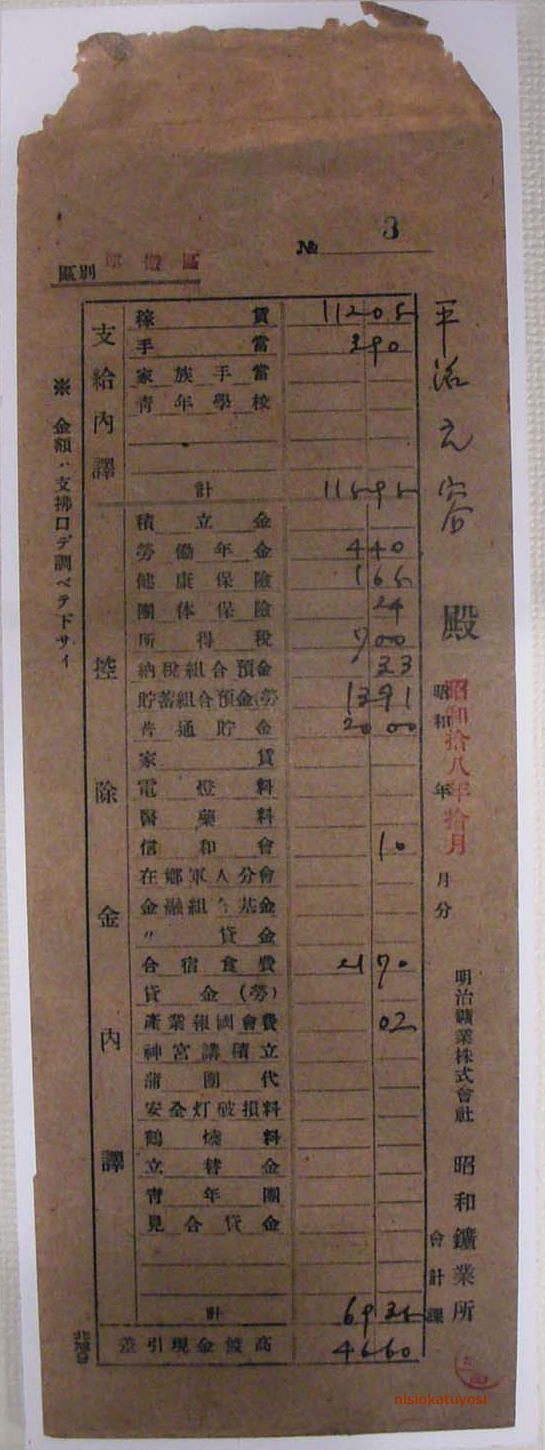 № 3
區別
支給内譯
稼賃 112 05
手當 3 90
家族手當
青年學校
計 115 95
控除金内譯
積立金
勞働年金 4 40
健康保險 1 65
團体保險 24
所得税 7 00
納税組合預金 33
貯蓄組合預金(勞) 13 91
普通貯金 20 00
家賃
電燈料
醫藥料
信和會 10
在郷軍人分會
金融組合基金
〃 貸金
合宿食費 21 70
貸金(勞)
產業報國會費 02
神宮講積立
蒲團代
安全灯破損料
鶴燒料
立替金
青年團
見合貸金
計 69 35
差引現金渡高 46 60
平
殿
昭和 年 月分
昭和拾八年拾月
明治礦業株式會社 昭和鑛業所
會計課
※ 金額ハ支拂口デ調ベテ下サイ
nisiokatuyosi